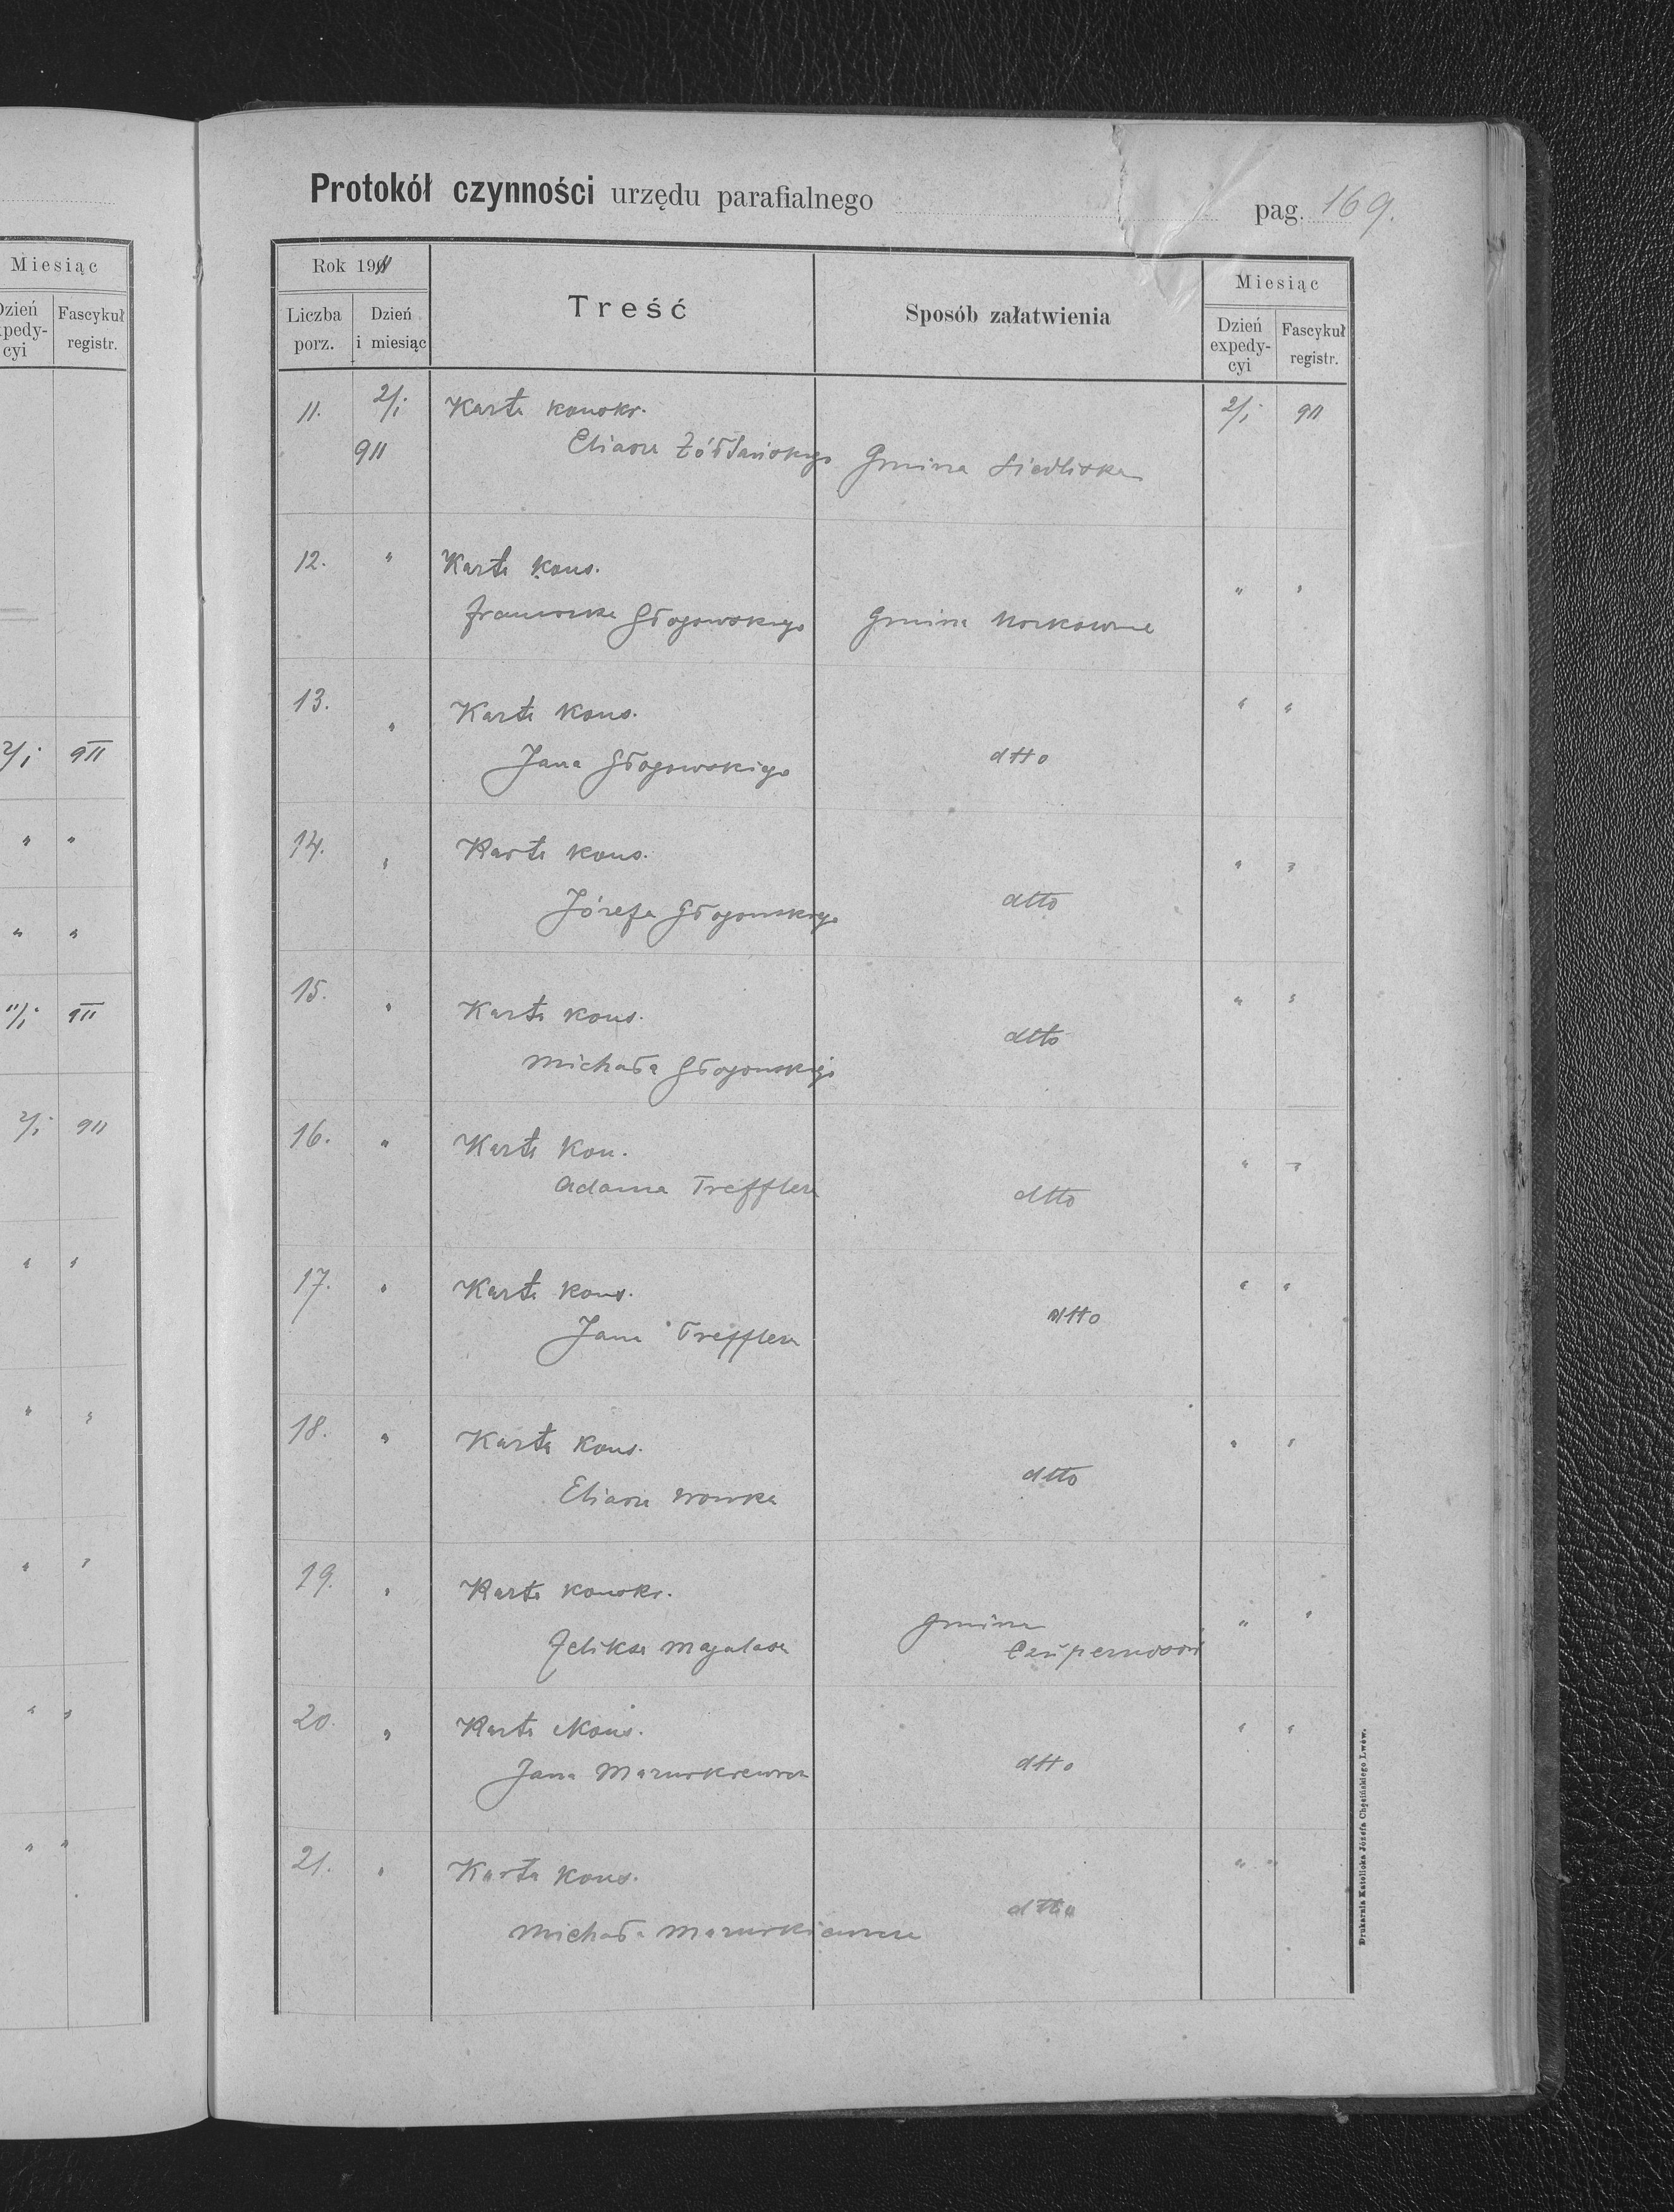 Protokół czynności urzędu parafialnego pag. 169.
Miesiąc
Dzień
expedy-
cyi
Fascykuł
registr.
2/i 911
" "
" "
11/i 911
2/i 911
" "
" "
" "
" "
" "
Rok 1911
Liczba
porz.
Dzień
i miesiąc
Treść
Sposób załatwienia
Miesiąc
Dzień
expedy-
cyi
Fascykuł
registr.
11. 2/i Karta konskr. 2/i 911
911 Eliasza Żółtańskiego Gmina Siedliska
12. " Karta kons. " "
Franciszka Głogowskiego Gmina
13. " Karta kons. " "
Jana Głogowskiego dtto
14. " Karta kons. " "
Józefa Głogowskiego dtto
15. " Karta kons. " "
Michała Głogowskiego dtto
16. " Karta Kon. " "
Adama Trefflera dtto
17. " Karta kons. " "
Jana Trefflera dtto
18. " Karta Kons. " "
Eliasza Wowka dtto
19. " Karta konskr. " "
Feliksa Magalasa Gmina
20. " Karta Kons. " "
Jana Mazurkiewicza dtto
21. " Karta Kons. " "
Michała Mazurkiewicza dtto
Drukarnia Katolicka Józefa Chęcińskiego Lwów.